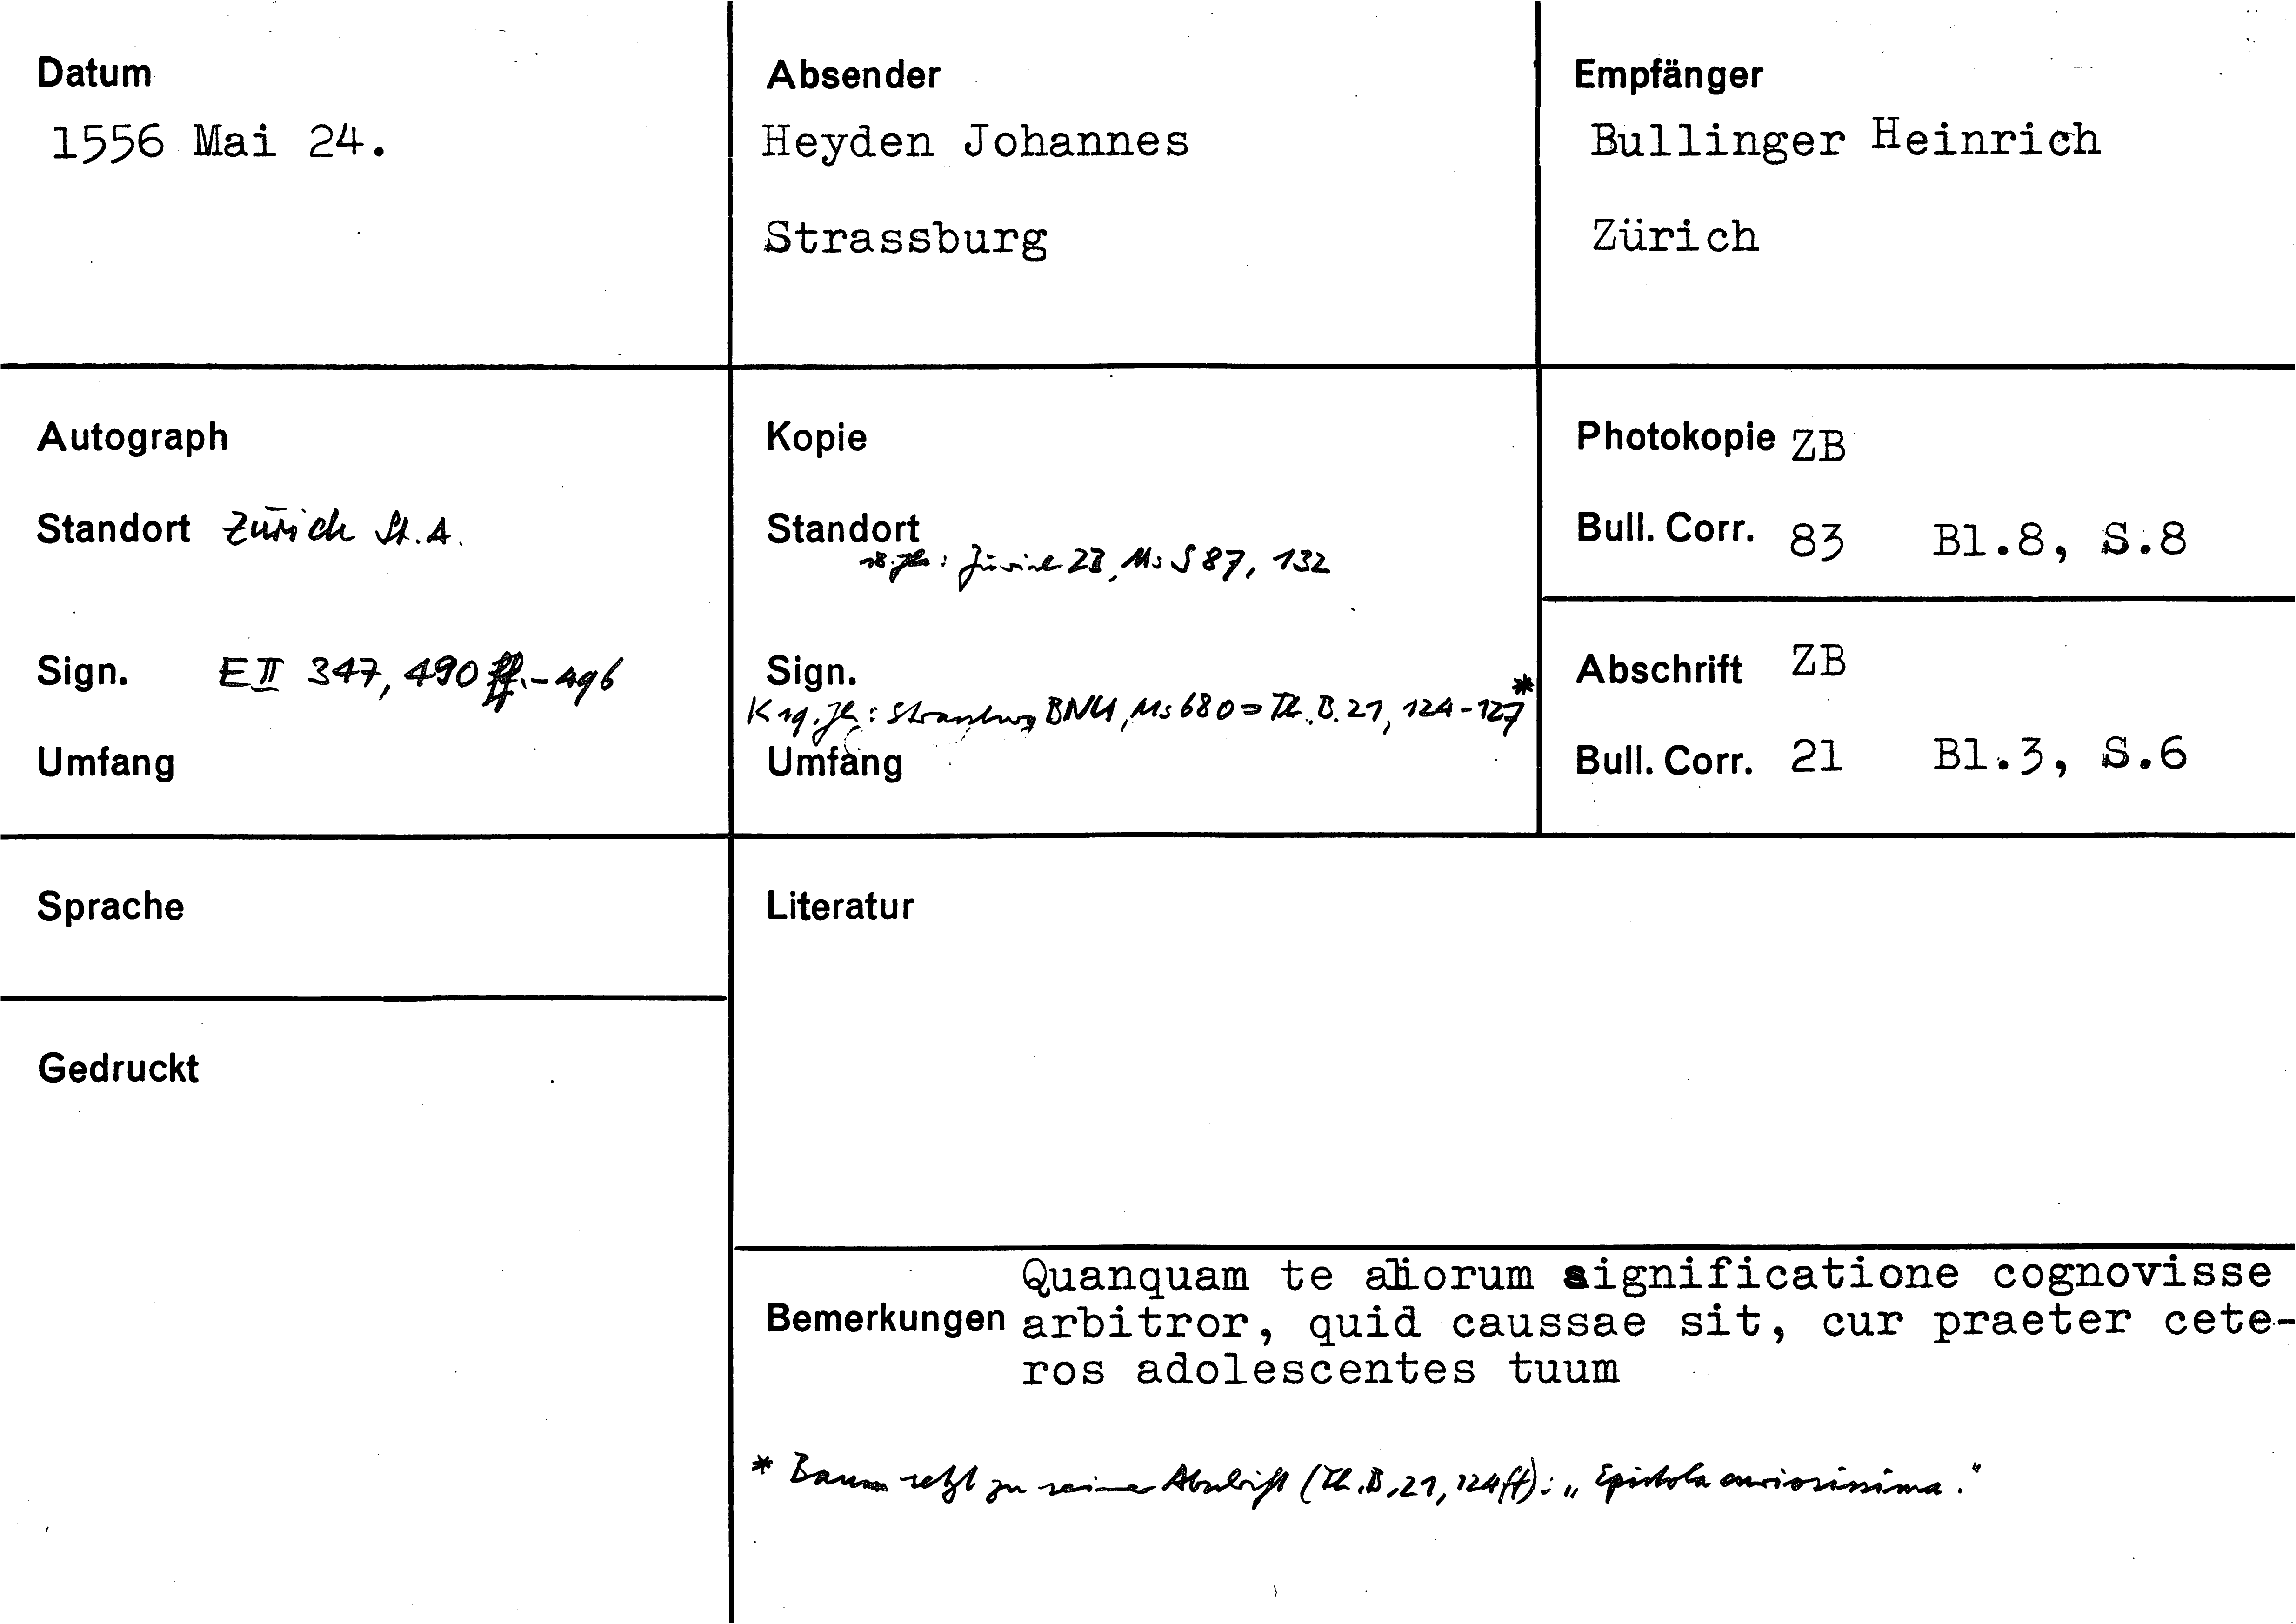 Datum
1556 Mai 24.
Absender
Heyden Johannes
Strassburg
Empfänger
Bullinger Heinrich
Zürich
Autograph
Standort Zürich St. A.
Sign. E II 347, 490 ff. - 496
Umfang
Kopie
Standort
18. Jh: Zürich ZB, Ms S 87, 132
Sign.
K 19. Jh: Strassburg BNU, Ms 680 = Th. B. 21, 124-127*
Umfang
Photokopie ZB
Bull. Corr. 83 Bl.8, S.8
Abschrift ZB
Bull. Corr. 21 Bl.3, S.6
Sprache
Gedruckt
Literatur
Bemerkungen
Quanquam te aliorum significatione cognovisse
arbitror, quid caussae sit, cur praeter cete-
ros adolescentes tuum
* Baum setzt zu seiner Abschrift (Th. B, 21, 124ff): „Epistola curiosissima."